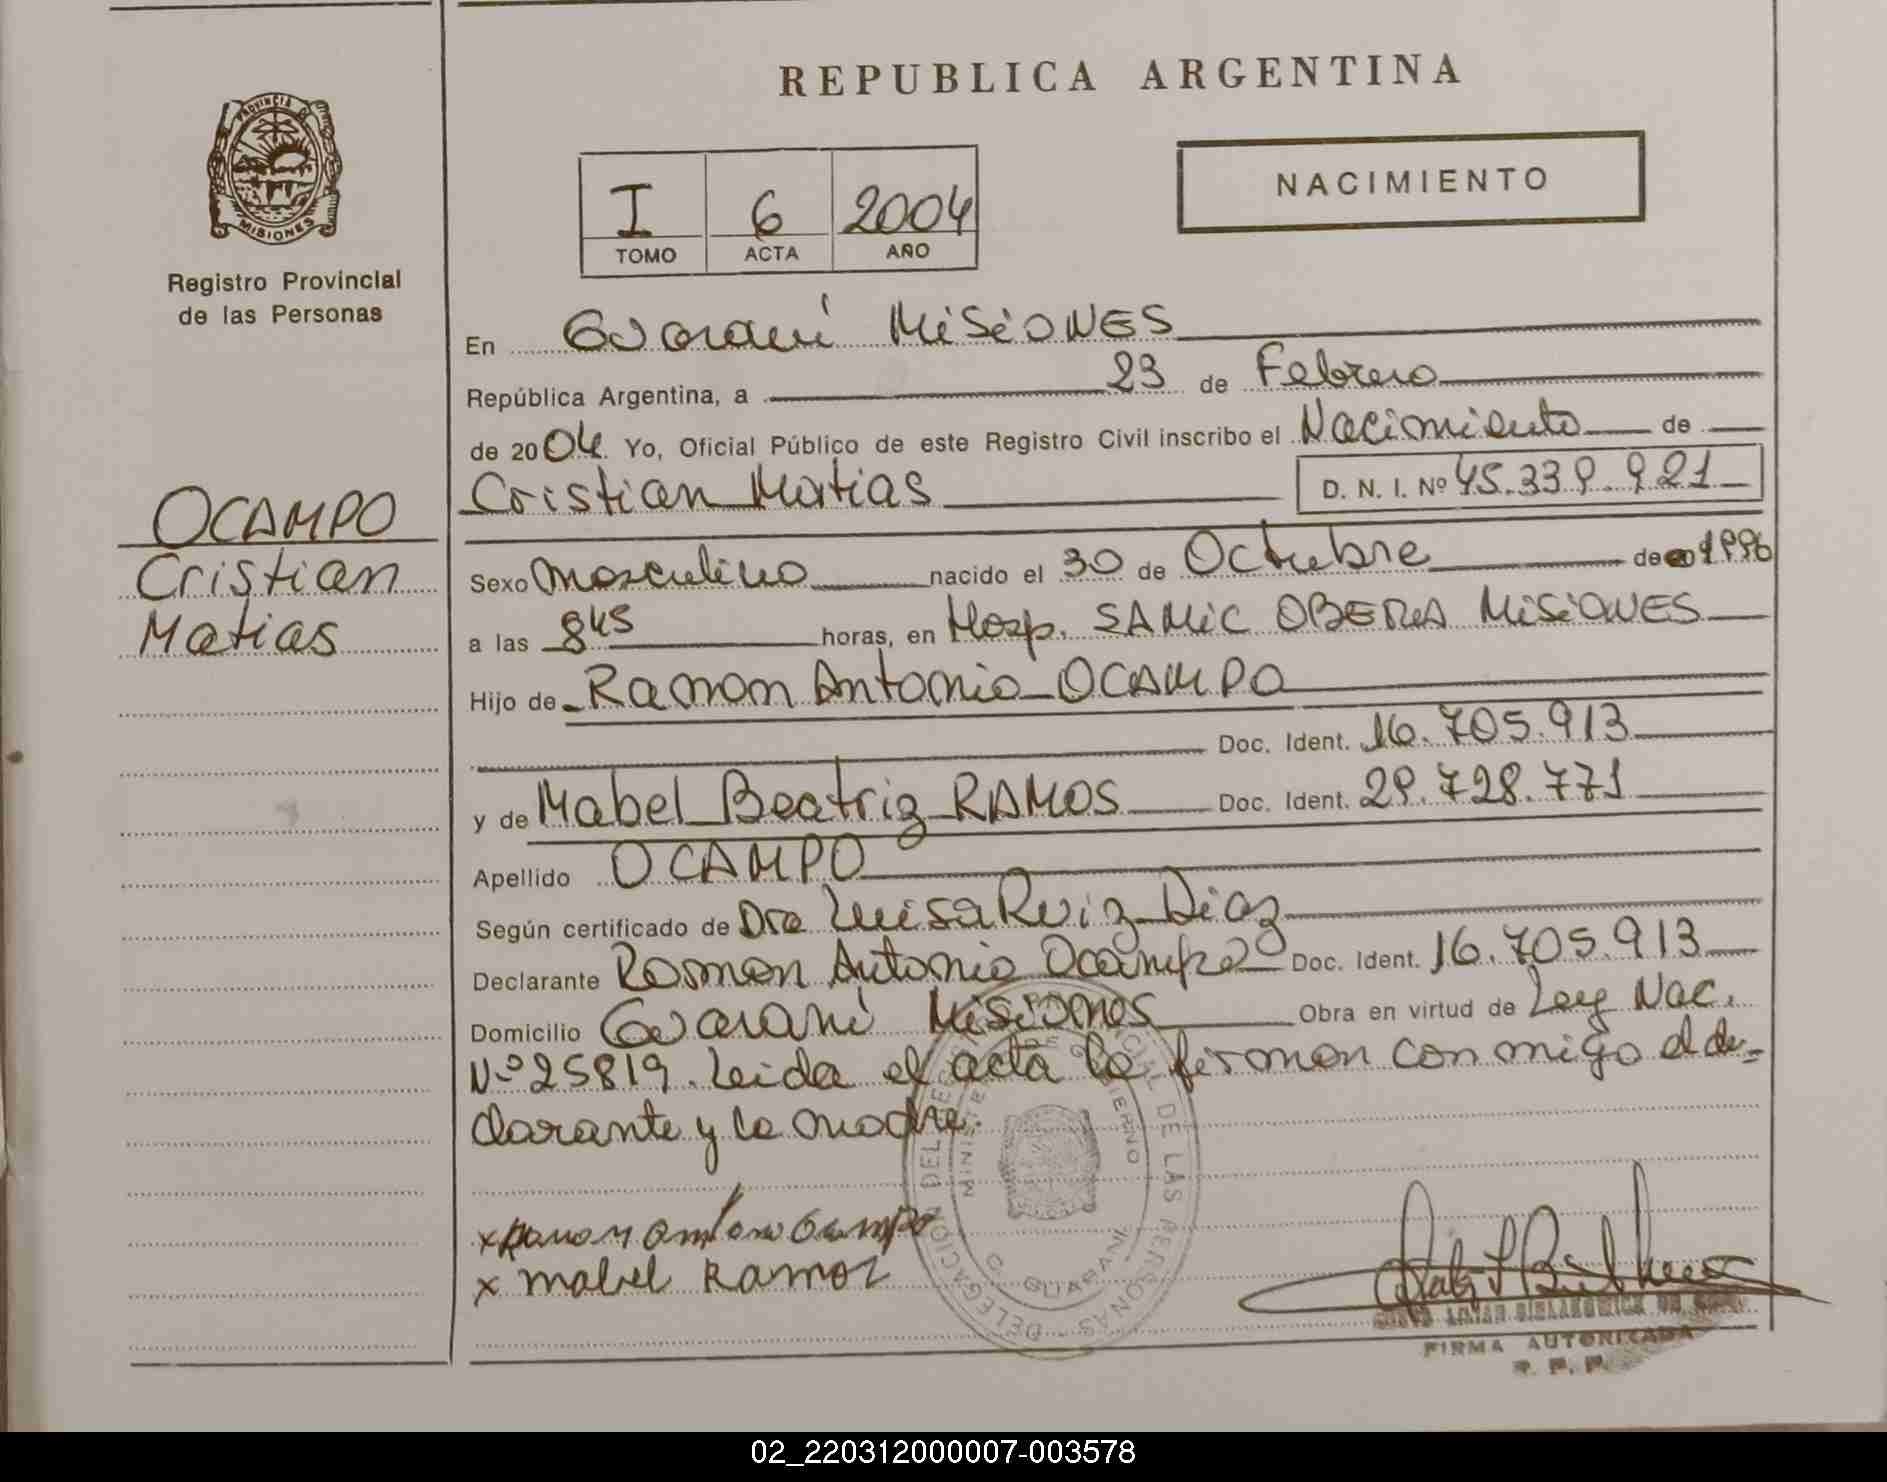 REPUBLICA ARGENTINA
PROVINCIA DE
MISIONES
Registro Provincial
de las Personas
I 6 2004
TOMO ACTA AÑO
NACIMIENTO
OCAMPO
Cristian
Matias
En Guarani MISIONES
República Argentina, a 23 de Febrero
de 2004 Yo, Oficial Público de este Registro Civil inscribo el Nacimiento de
Cristian Matias D. N. I. Nº 45.339.921
Sexo Masculino nacido el 30 de Octubre de 1996
a las 845 horas, en Hosp. SAMIC OBERA MISIONES
Hijo de Ramon Antonio OCAMPO
Doc. Ident. 16.705.913
y de Mabel Beatriz RAMOS Doc. Ident. 29.728.771
Apellido OCAMPO
Según certificado de Dra Luisa Ruiz Diaz
Declarante Ramon Antonio Ocampo Doc. Ident. 16.705.913
Domicilio Guarani Misiones Obra en virtud de Ley Nac.
Nº 25819. Leida el acta la firman con migo el de-
clarante y la madre.
x Ramon Antonio Ocampo
x mabel Ramos
DELEGACION DE LAS PERSONAS
GUARANI
FIRMA AUTORIZADA
R. P. P.
02_220312000007-003578